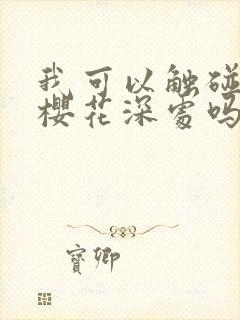 我可以触碰
樱花深处吗
寶卿